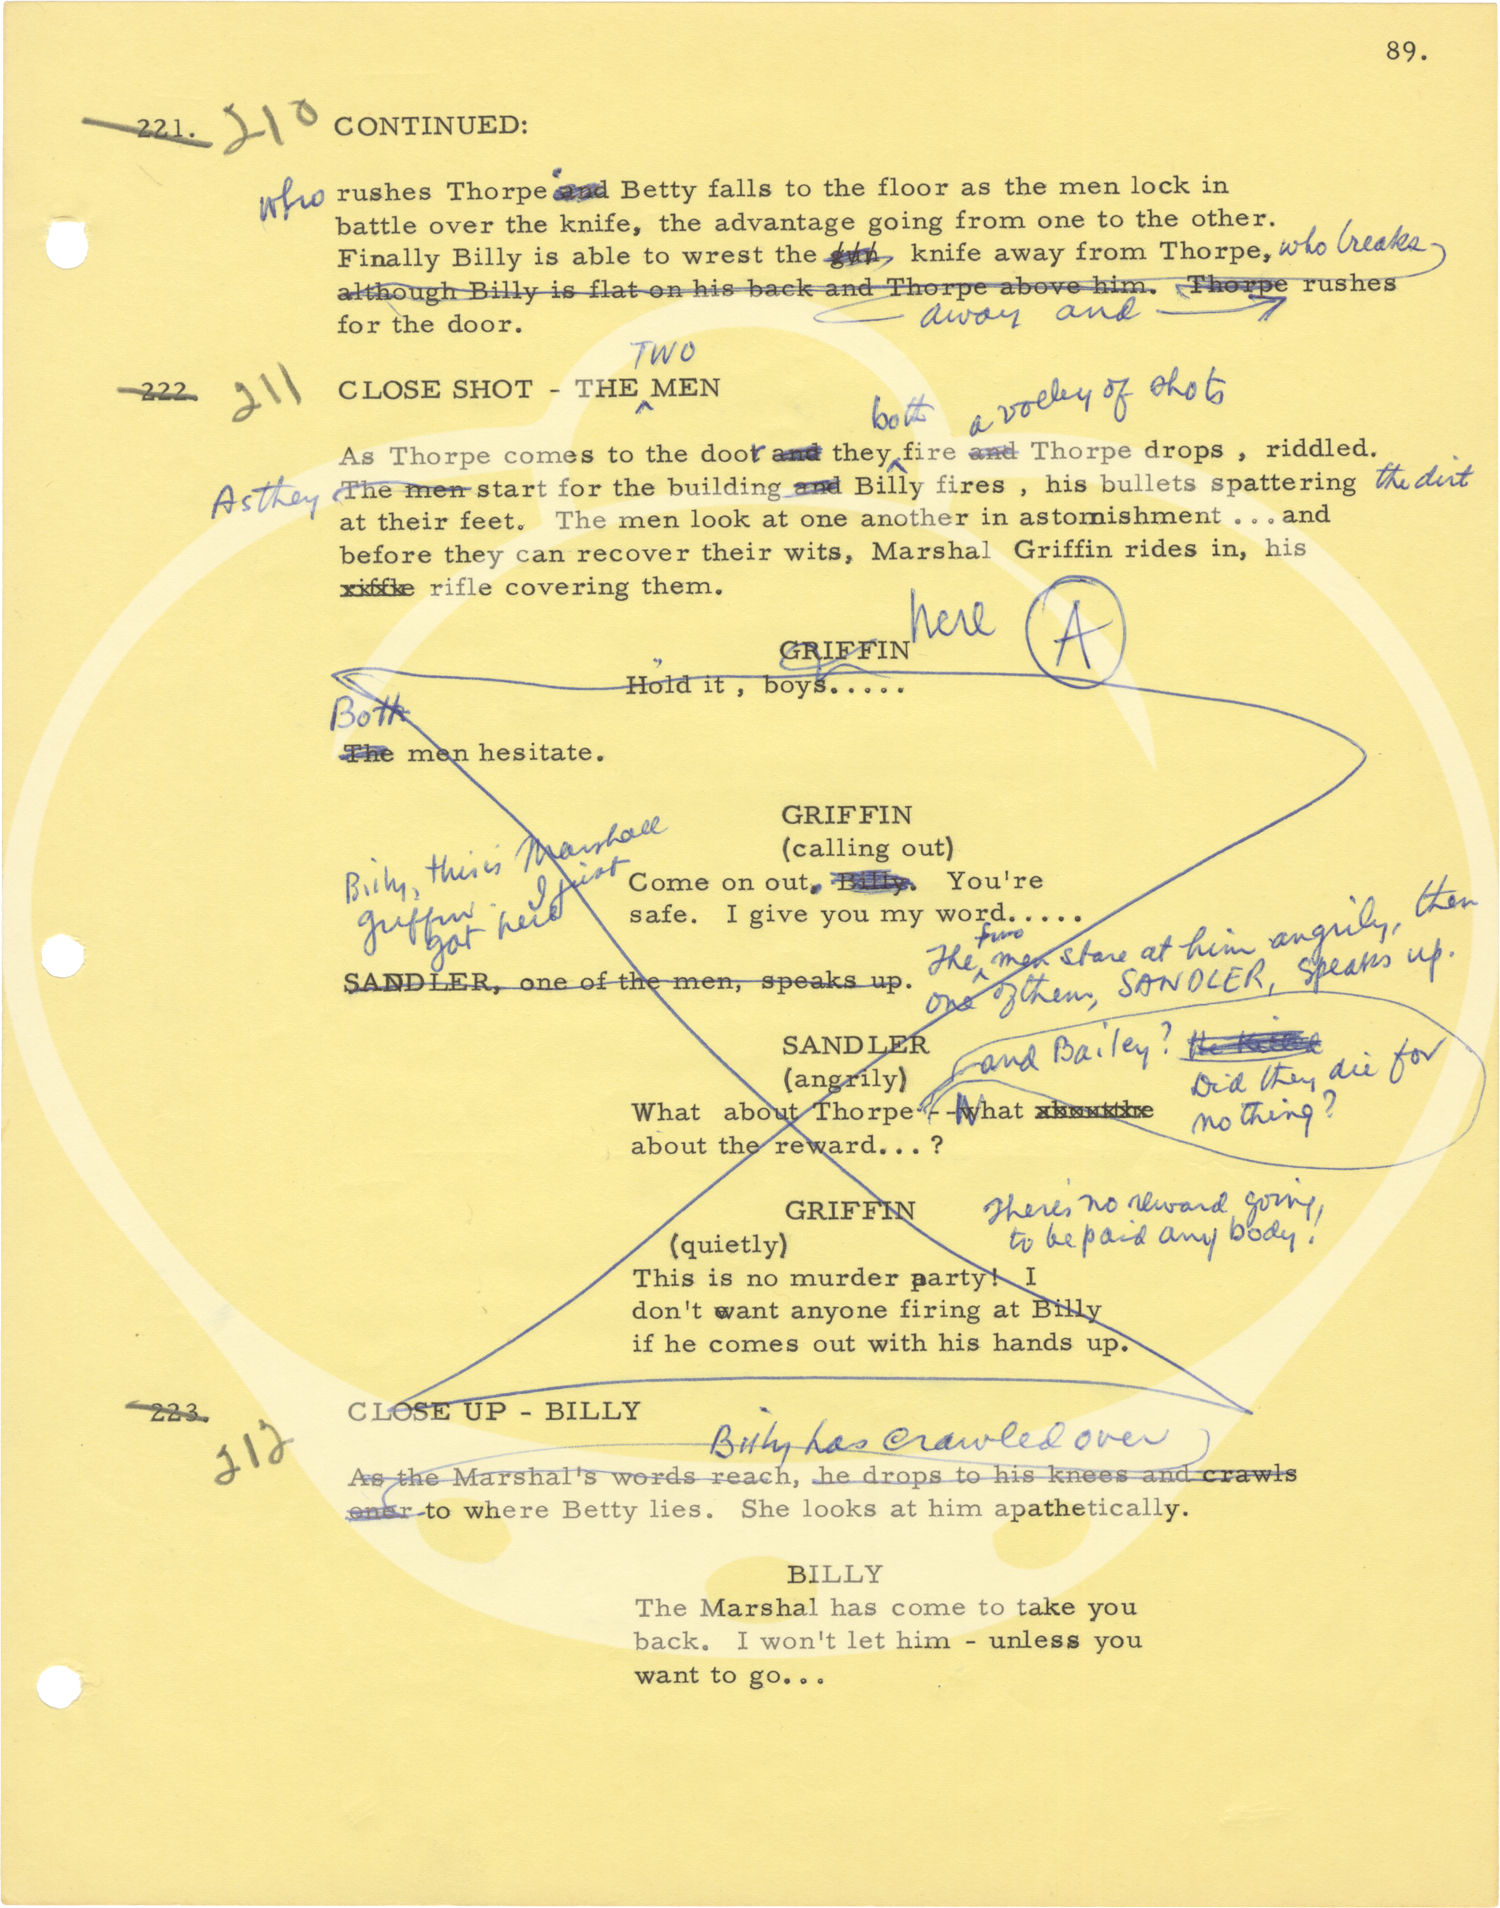 89.
221. 210 CONTINUED:
who rushes Thorpe and Betty falls to the floor as the men lock in
battle over the knife, the advantage going from one to the other.
Finally Billy is able to wrest the gun, knife away from Thorpe, who breaks
although Billy is flat on his back and Thorpe above him. Thorpe rushes
away and
for the door.
TWO
222. 211 CLOSE SHOT - THE MEN
both a volley of shots
As Thorpe comes to the door and they fire and Thorpe drops , riddled.
As they The men start for the building and Billy fires , his bullets spattering the dirt
at their feet. The men look at one another in astonishment ...and
before they can recover their wits, Marshal Griffin rides in, his
rifle covering them.
here A
GRIFFIN
Hold it , boys.....
Both
The men hesitate.
GRIFFIN
(calling out)
Billy, this is Marshall
Griffin. I just
got here
Come on out. Billy. You're
safe. I give you my word.....
The two men stare at him angrily, then
one of them, SANDLER, speaks up.
SANDLER, one of the men, speaks up.
SANDLER
(angrily)
and Bailey? He killed
Did they die for
nothing?
What about Thorpe -- What about the
about the reward...?
GRIFFIN
There's no reward going,
to be paid any body!
(quietly)
This is no murder party! I
don't want anyone firing at Billy
if he comes out with his hands up.
223. 212 CLOSE UP - BILLY
Billy has crawled over
As the Marshal's words reach, he drops to his knees and crawls
to where Betty lies. She looks at him apathetically.
BILLY
The Marshal has come to take you
back. I won't let him - unless you
want to go...